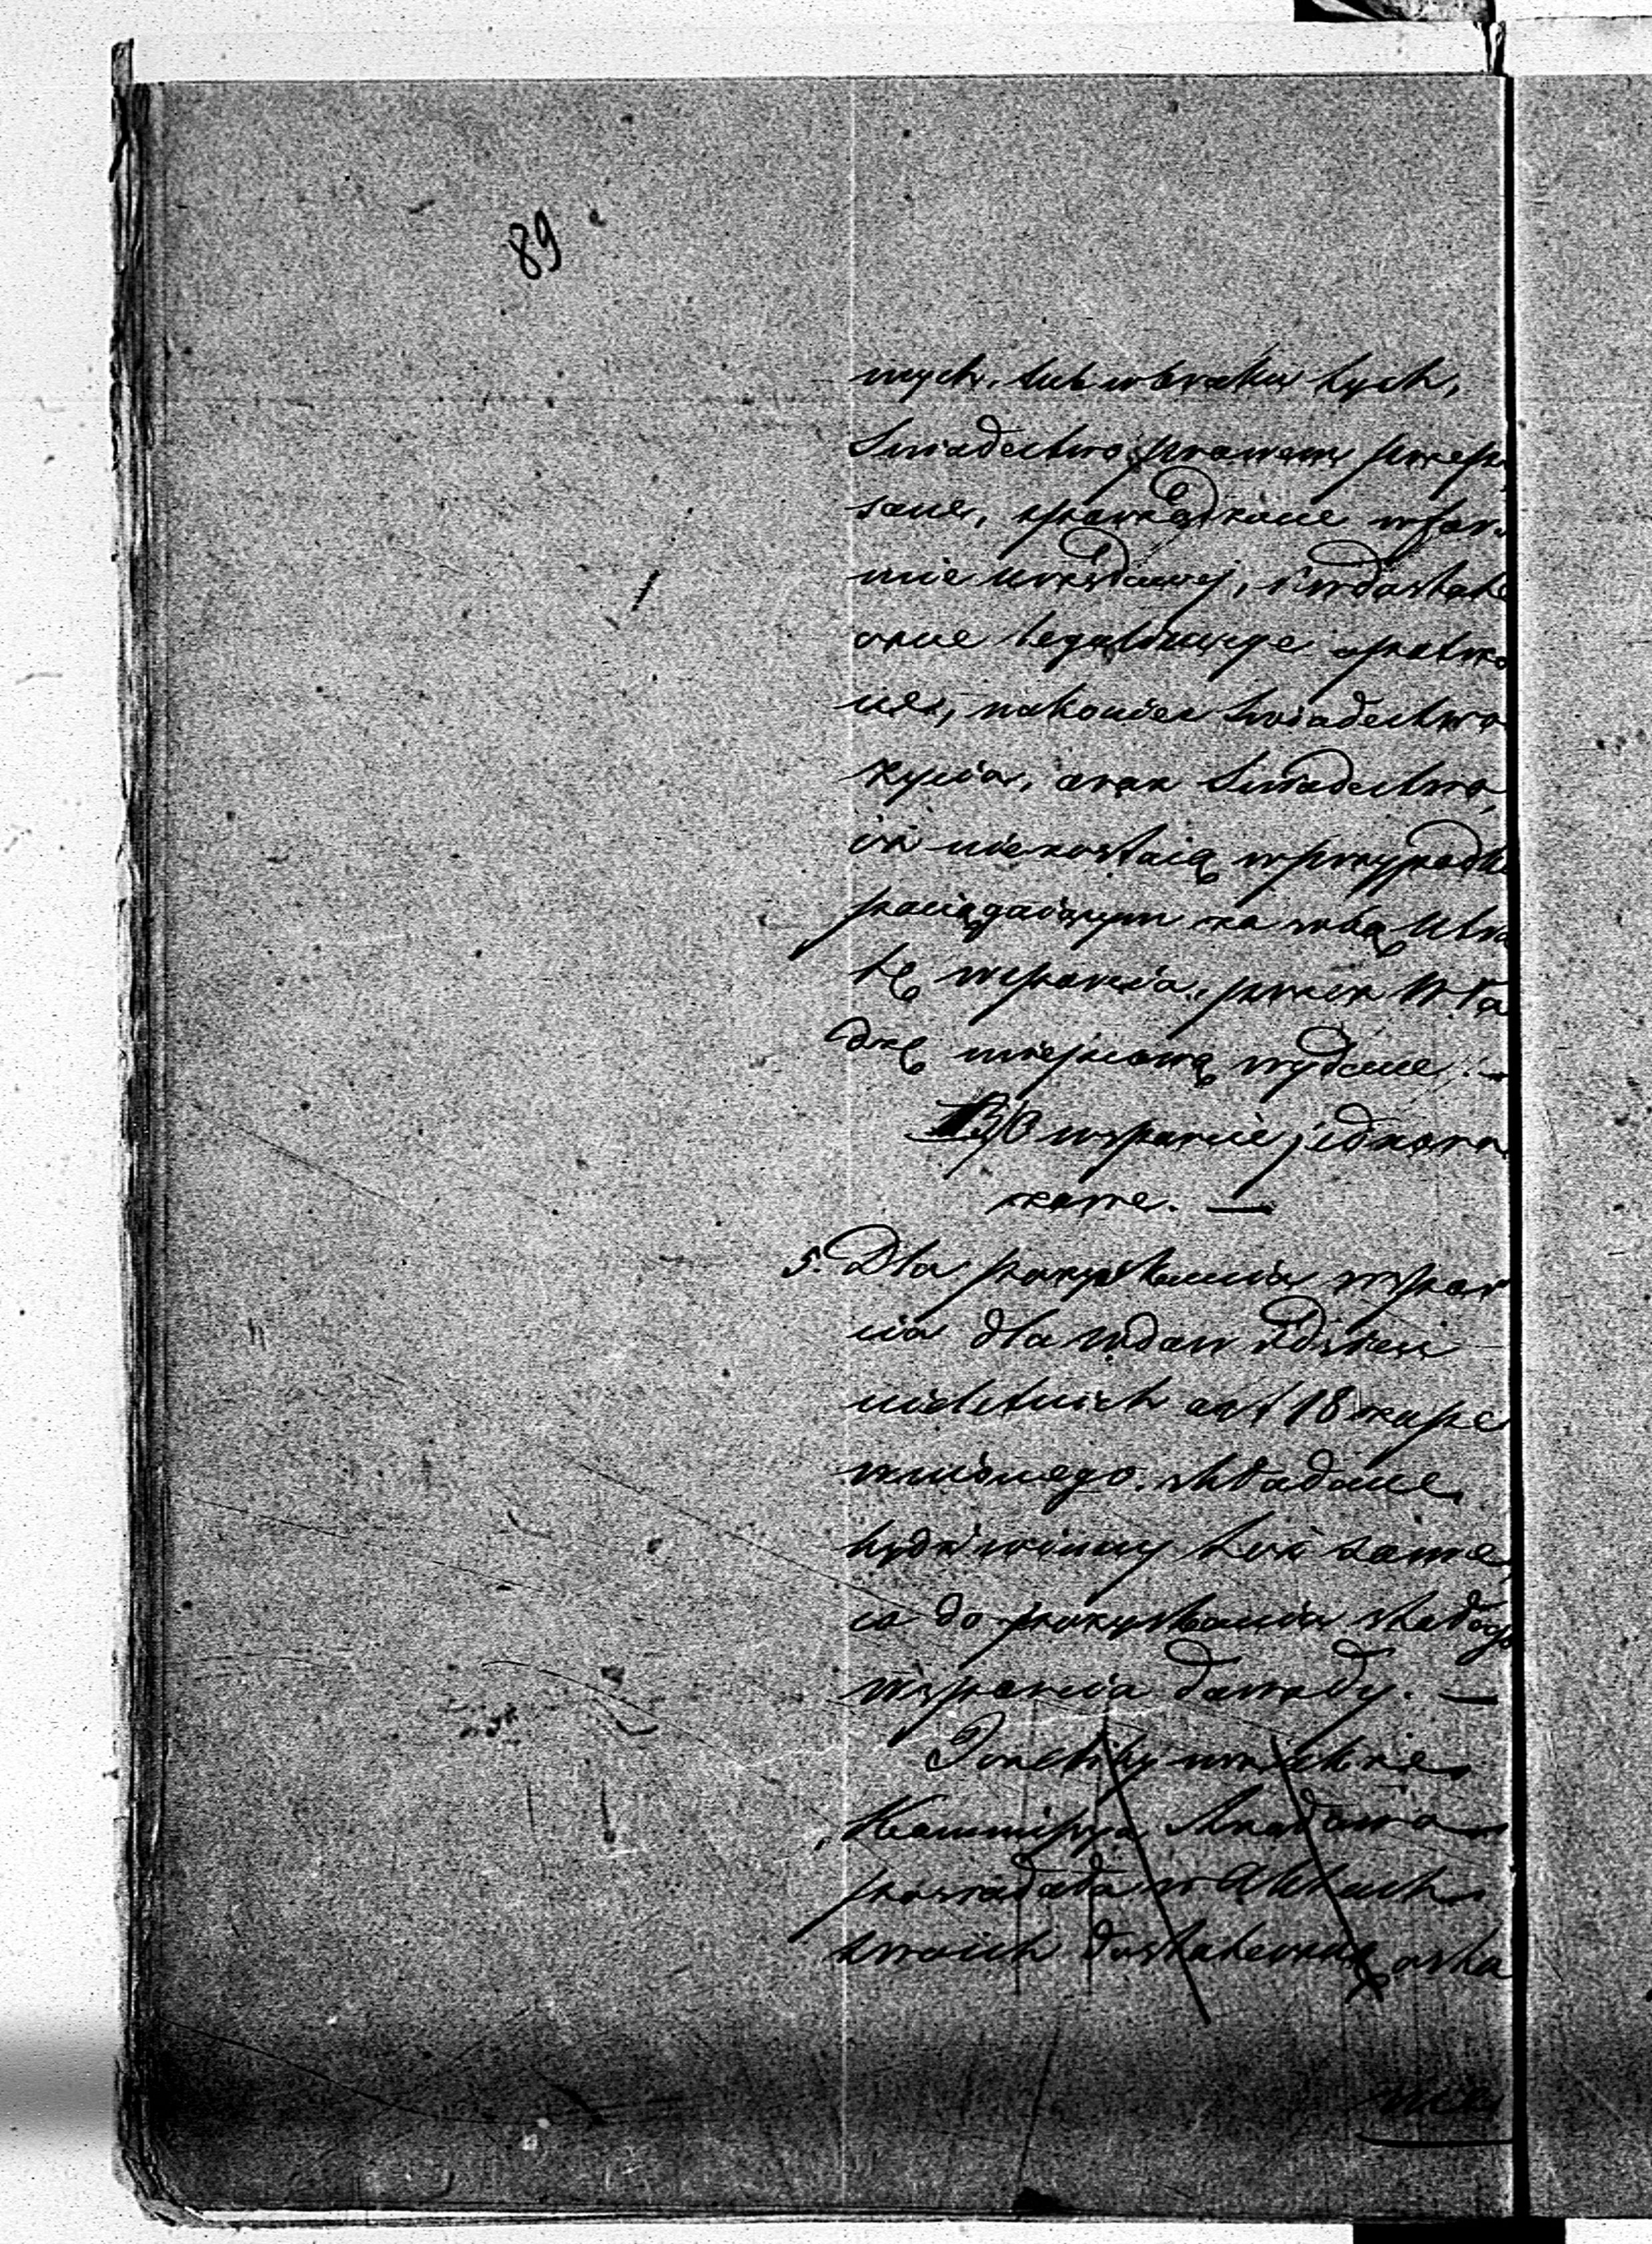 89
nych, lub w braku tych,
Swiadectwa prawem przepi
sane, sporządzone w for
mie urzędowej, i w dostate
czne legalizacye opatrzo
ne, nakoniec Swiadectwa
życia, oraz Swiadectwa,
iż niezostaią w przypadku
pociągaiącym za sobą utra
tę wsparcia, przez Wła
dzę mieyscową wydane. —
B) O wsparcie jednora
zowe. —
5. Dla pozyskania wspar
cia dla wdów i dzieci
nieletnich art 18 zape
wnionego. składane
bydź winny też same,
co do pozyskania stałego
wsparcia dowody. —
Kommissya Rządowa
posiadała w Aktach
swoich dostateczne, osta